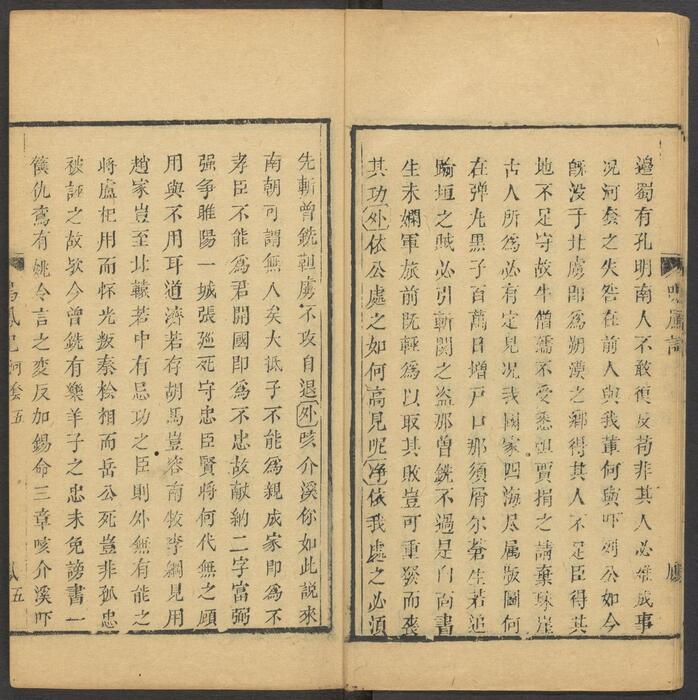 邉蜀有孔明南人不敢復反苟非其人必難成事
况河套之失咎在前人與我董何與吓列公如今
既没于北虜即爲朔漠之鄉得其人不足臣得其
地不足守故牛僧孺不受悉怛賈捐之請棄珠崖
古人所爲必有定見况我國家四海尽属版圖何
在弹丸黒子百萬日增戸口那須屑尔蒼生若追
踰垣之賊必引斬関之盗那曾銑不過是白面書
生未嫻軍旅前既輕爲以取其敗豈可重發而喪
其功外依公處之如何高見呢净依我處之必須
先斬曾銑韃虜不攻自退外咳介溪你如此説來
南朝可謂無人矣大抵子不能爲親成家即爲不
孝臣不能爲君開國即爲不忠故献納二字富弼
强争睢陽一城張廵死守忠臣賢將何代無之願
用與不用耳道濟若存胡馬豈容南牧李綱見用
趙家豈至北轅若中有忌功之臣則外無有能之
將盧杞用而怀光叛秦桧相而岳公死豈非孤忠
被誣之故欤今曾銑有樂羊子之忠未免謗書一
篋仇鸞有姚令言之变反加錫命三章咳介溪吓
鳴鳳記 河套 五